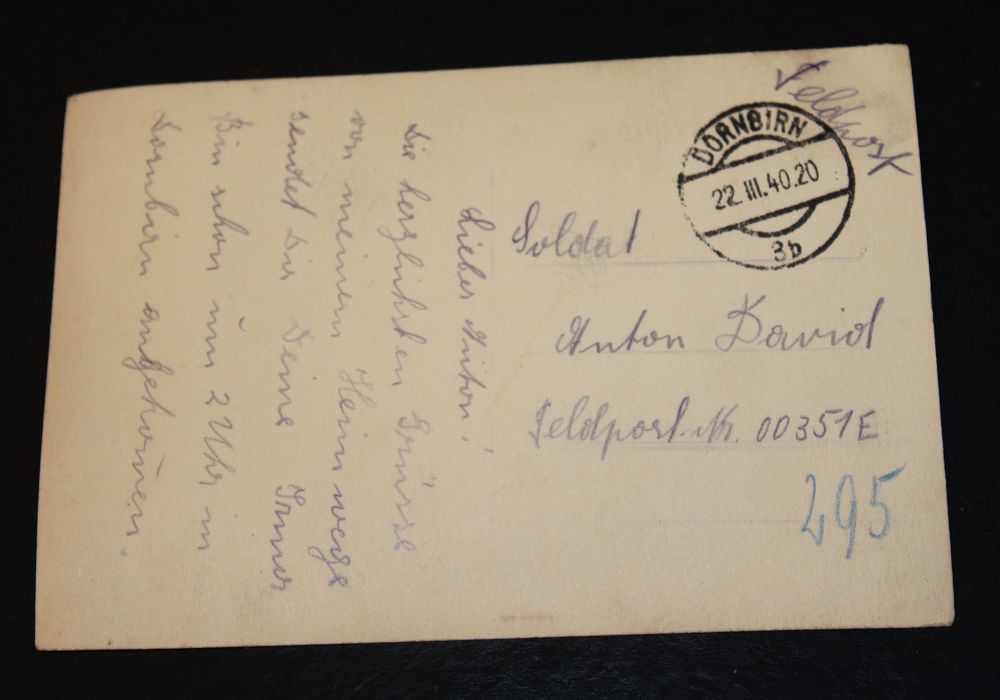 Feldpost
DORNBIRN
22.III.40.20
3b
Soldat
Anton David
Feldpost.Nr. 00351E
295
Lieber Anton!
Die herzlichsten Grüsse
von meinem Heimwege
sendet dir Deine Irma
Bin schon um 2 Uhr in
Dornbirn angekomen.